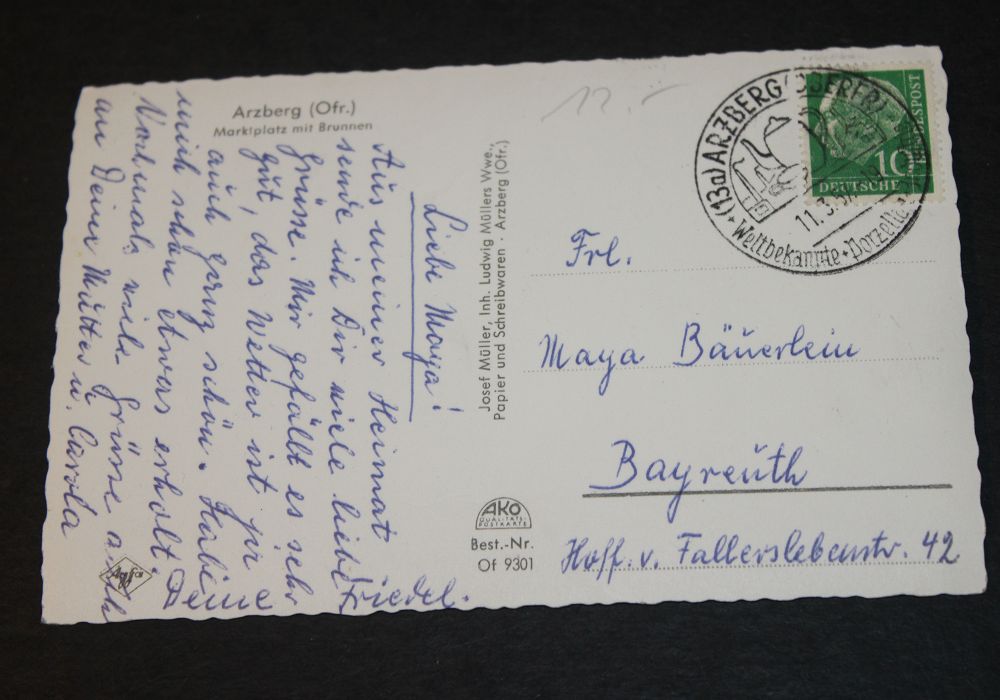 Arzberg (Ofr.)
Marktplatz mit Brunnen
Liebe Maya!
Aus meiner Heimat
sende ich Dir viele liebe
Grüsse. Mir gefällt es sehr
gut, das Wetter ist ja
auch ganz schön. Habe
mich schon etwas erholt.
Nochmals viele Grüsse auch
an Deine Mutter u. Carola
Deine Friedel.
Josef Müller, Inh. Ludwig Müllers Wwe.,
Papier und Schreibwaren · Arzberg (Ofr.)
AKO
QUALITÄTS-
POSTKARTE
Best.-Nr.
Of 9301
Agfa
12.-
(13a) ARZBERG (OBERFR
11.3.57
Weltbekannte + Porzella
10
DEUTSCHE
BUNDESPOST
Frl.
Maya Bäuerlein
Bayreuth
Hoff. v. Fallerslebenstr. 42